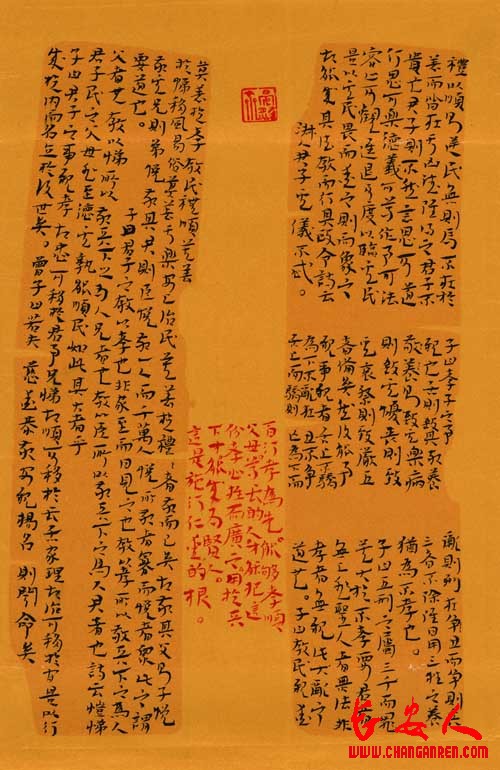 禮以順則逆民無則焉不在於
善而皆在于凶德雖得之君子不
貴也君子則不然言思可道
行思可樂德義可尊作事可法
容止可觀進退可度以臨其民
是以其民畏而愛之則而象之
故能成其德教而行其政令詩云
淑人君子其儀不忒。
子曰孝子之事
親也居則致其敬養
則致其樂病
則致其憂喪則致
其哀祭則致嚴五
者備矣然後能事
親事親者居上不驕
為下不亂在丑不爭
居上而驕則
亡為下而
亂則刑在丑而爭則兵
三者不除雖日用三牲之養
猶為不孝也。
子曰五刑之屬三千而罪
莫大於不孝要君者
無上非聖人者無法非
孝者無親此大亂之
道也。子曰教民親愛
莫善於孝教民禮順莫善
於悌移風易俗莫善于樂安上治民莫善於禮禮者敬而已矣故敬其父則子悅
敬其兄則弟悅敬其君則臣悅敬一人而千萬人悅所敬者寡而悅者眾此之謂
要道也。
子曰君子之教以孝也非家至而日見之也教以孝所以敬天下之為人
父者也教以悌所以敬天下之為人兄者也教以臣所以敬天下之為人君者也詩云愷悌
君子民之父母非至德其孰能順民如此其大者乎
子曰君子之事親孝故忠可移於君事兄悌故順可移於長居家理故治可移於官是以行
成於內而名立於後世矣。曾子曰若夫慈愛恭敬安親揚名則聞命矣
百行孝為先。能夠孝順
父母尊長的人才能把這
份孝心推而廣之用於天
下才能成為賢人。
這是施行仁愛的根。
長安人
WWW.CHANGANREN.COM